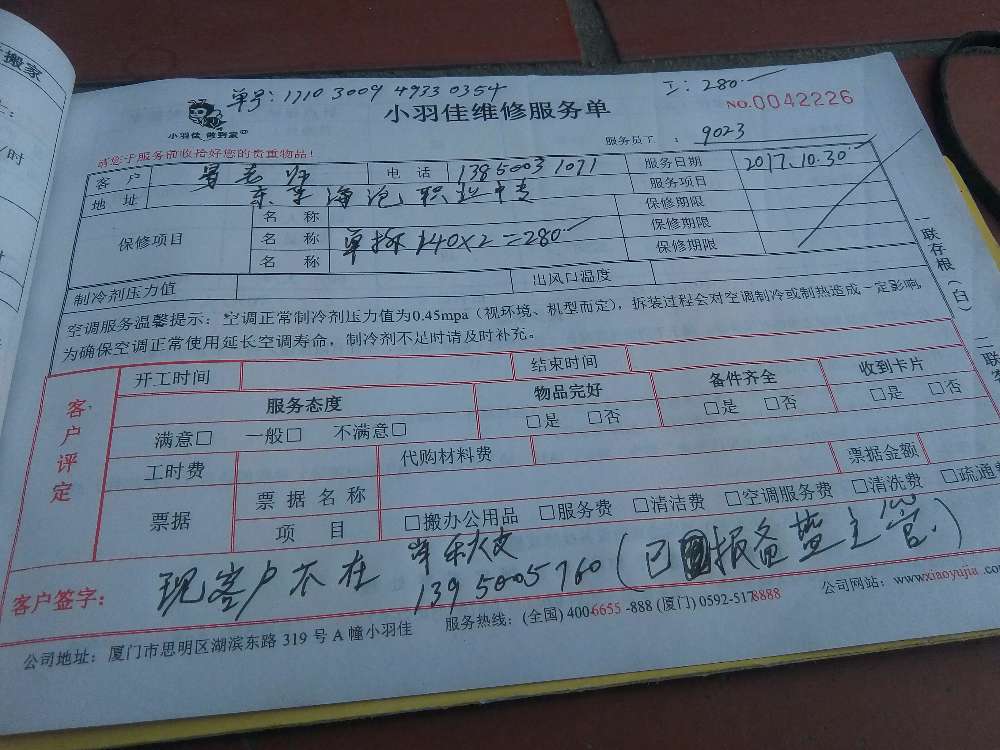 搬家
/时
单号：1710 3009 4933 0354
工：280.
小羽佳 做到家
小羽佳维修服务单
NO.0042226
请您于服务前收拾好您的贵重物品！
服务员工：9023
客户
电话 13850031071
服务日期 2017.10.30
地址 海沧职业中专
服务项目
保修项目
名称
保修期限
名称 单拆140X2=280.
保修期限
名称
保修期限
制冷剂压力值
出风口温度
空调服务温馨提示：空调正常制冷剂压力值为0.45mpa（视环境、机型而定），拆装过程会对空调制冷或制热造成一定影响，
为确保空调正常使用延长空调寿命，制冷剂不足时请及时补充。
一联存根（白）
二联客
客户评定
开工时间
结束时间
服务态度
物品完好
备件齐全
收到卡片
满意□ 一般□ 不满意□
□是 □否
□是 □否
□是 □否
工时费
代购材料费
票据金额
票据
票据名称
项目
□搬办公用品 □服务费 □清洁费 □空调服务费 □清洗费 □疏通费
客户签字：
现客户不在
1395005760（已报备 主管.）
公司地址：厦门市思明区湖滨东路319号A幢小羽佳
服务热线：(全国) 400-6655-888 (厦门) 0592-5178888
公司网站：www.xiaoyujia.co